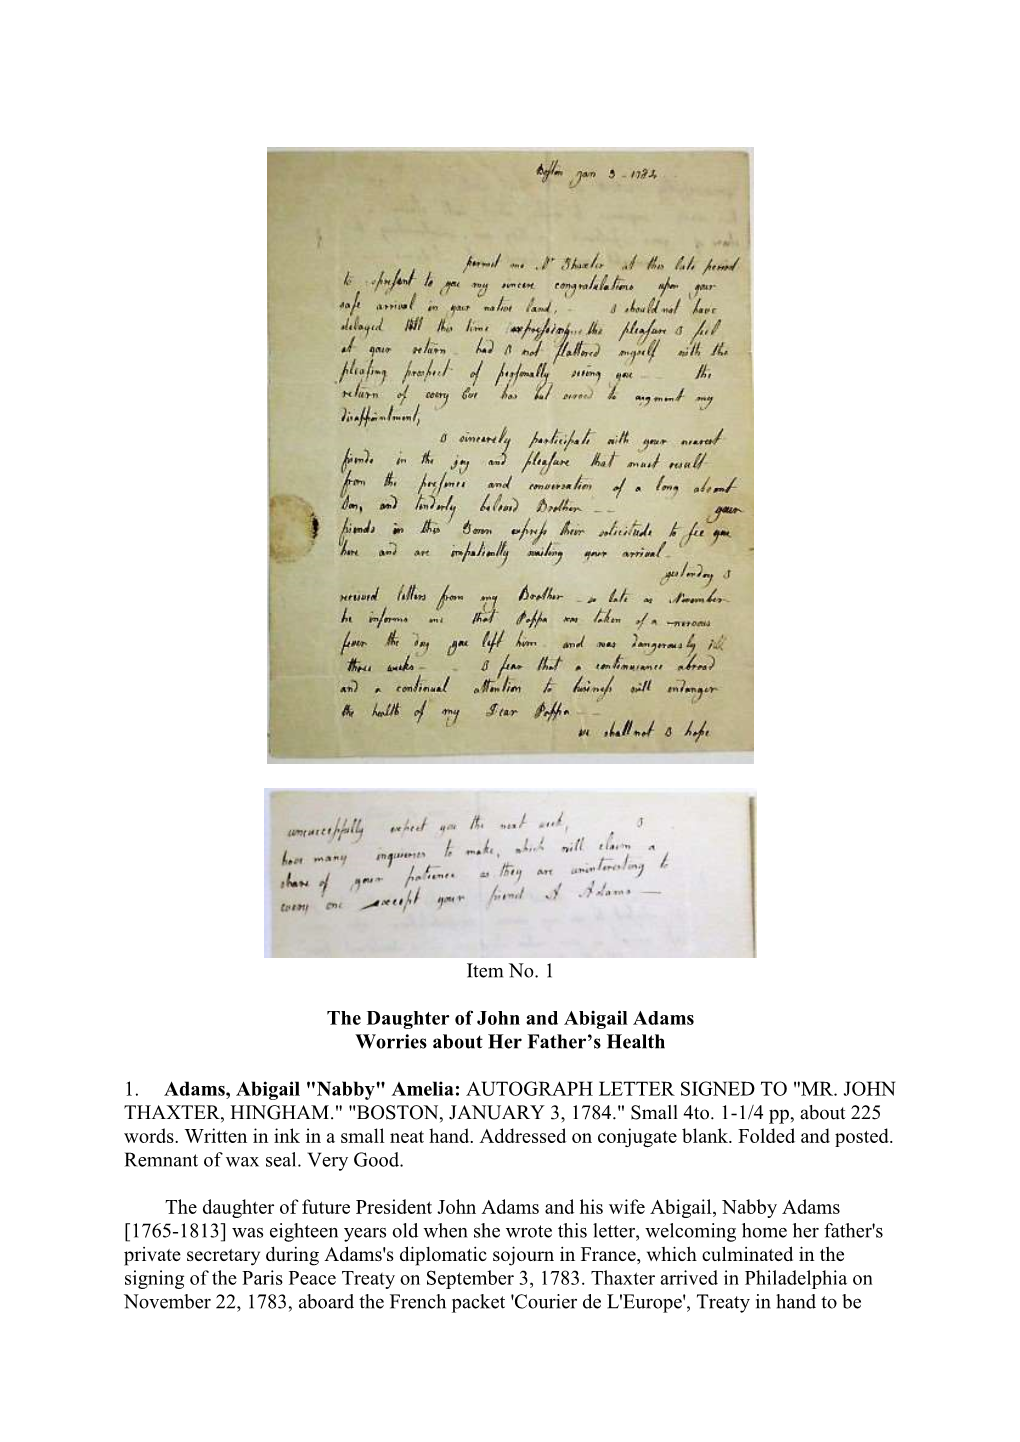 Boston Jan 3 - 1784
permit me Mr Thaxter at this late period
to present to you my sincere congratulations upon your
safe arrival in your native land, - I should not have
delayed till this time expressing the pleasure I feel
at your return - had I not flattered myself with the
pleasing prospect of personally seeing you - - the
return of every Eve has but served to augment my
disappointment,
I sincerely participate with your nearest
friends in the joy and pleasure that must result
from the presence and conversation of a long absent
Son, and tenderly beloved Brother - - your
friends in this Town express their solicitude to see you
here and are impatiently waiting your arrival -
yesterday I
received letters from my Brother - so late as November
he informs me that Pappa was taken of a nervous
fever the day you left him - and was dangerously ill
three weeks - - I fear that a continuance abroad
and a continual attention to business will endanger
the health of my Dear Pappa - -
we shall not I hope
unsuccessfully expect you the next week, I
have many inquireies to make, which will claim a
share of your patience as they are uninteresting to
every one except your friend A Adams -
Item No. 1
The Daughter of John and Abigail Adams
Worries about Her Father’s Health
1. Adams, Abigail "Nabby" Amelia: AUTOGRAPH LETTER SIGNED TO "MR. JOHN
THAXTER, HINGHAM." "BOSTON, JANUARY 3, 1784." Small 4to. 1-1/4 pp, about 225
words. Written in ink in a small neat hand. Addressed on conjugate blank. Folded and posted.
Remnant of wax seal. Very Good.
The daughter of future President John Adams and his wife Abigail, Nabby Adams
[1765-1813] was eighteen years old when she wrote this letter, welcoming home her father's
private secretary during Adams's diplomatic sojourn in France, which culminated in the
signing of the Paris Peace Treaty on September 3, 1783. Thaxter arrived in Philadelphia on
November 22, 1783, aboard the French packet 'Courier de L'Europe', Treaty in hand to be